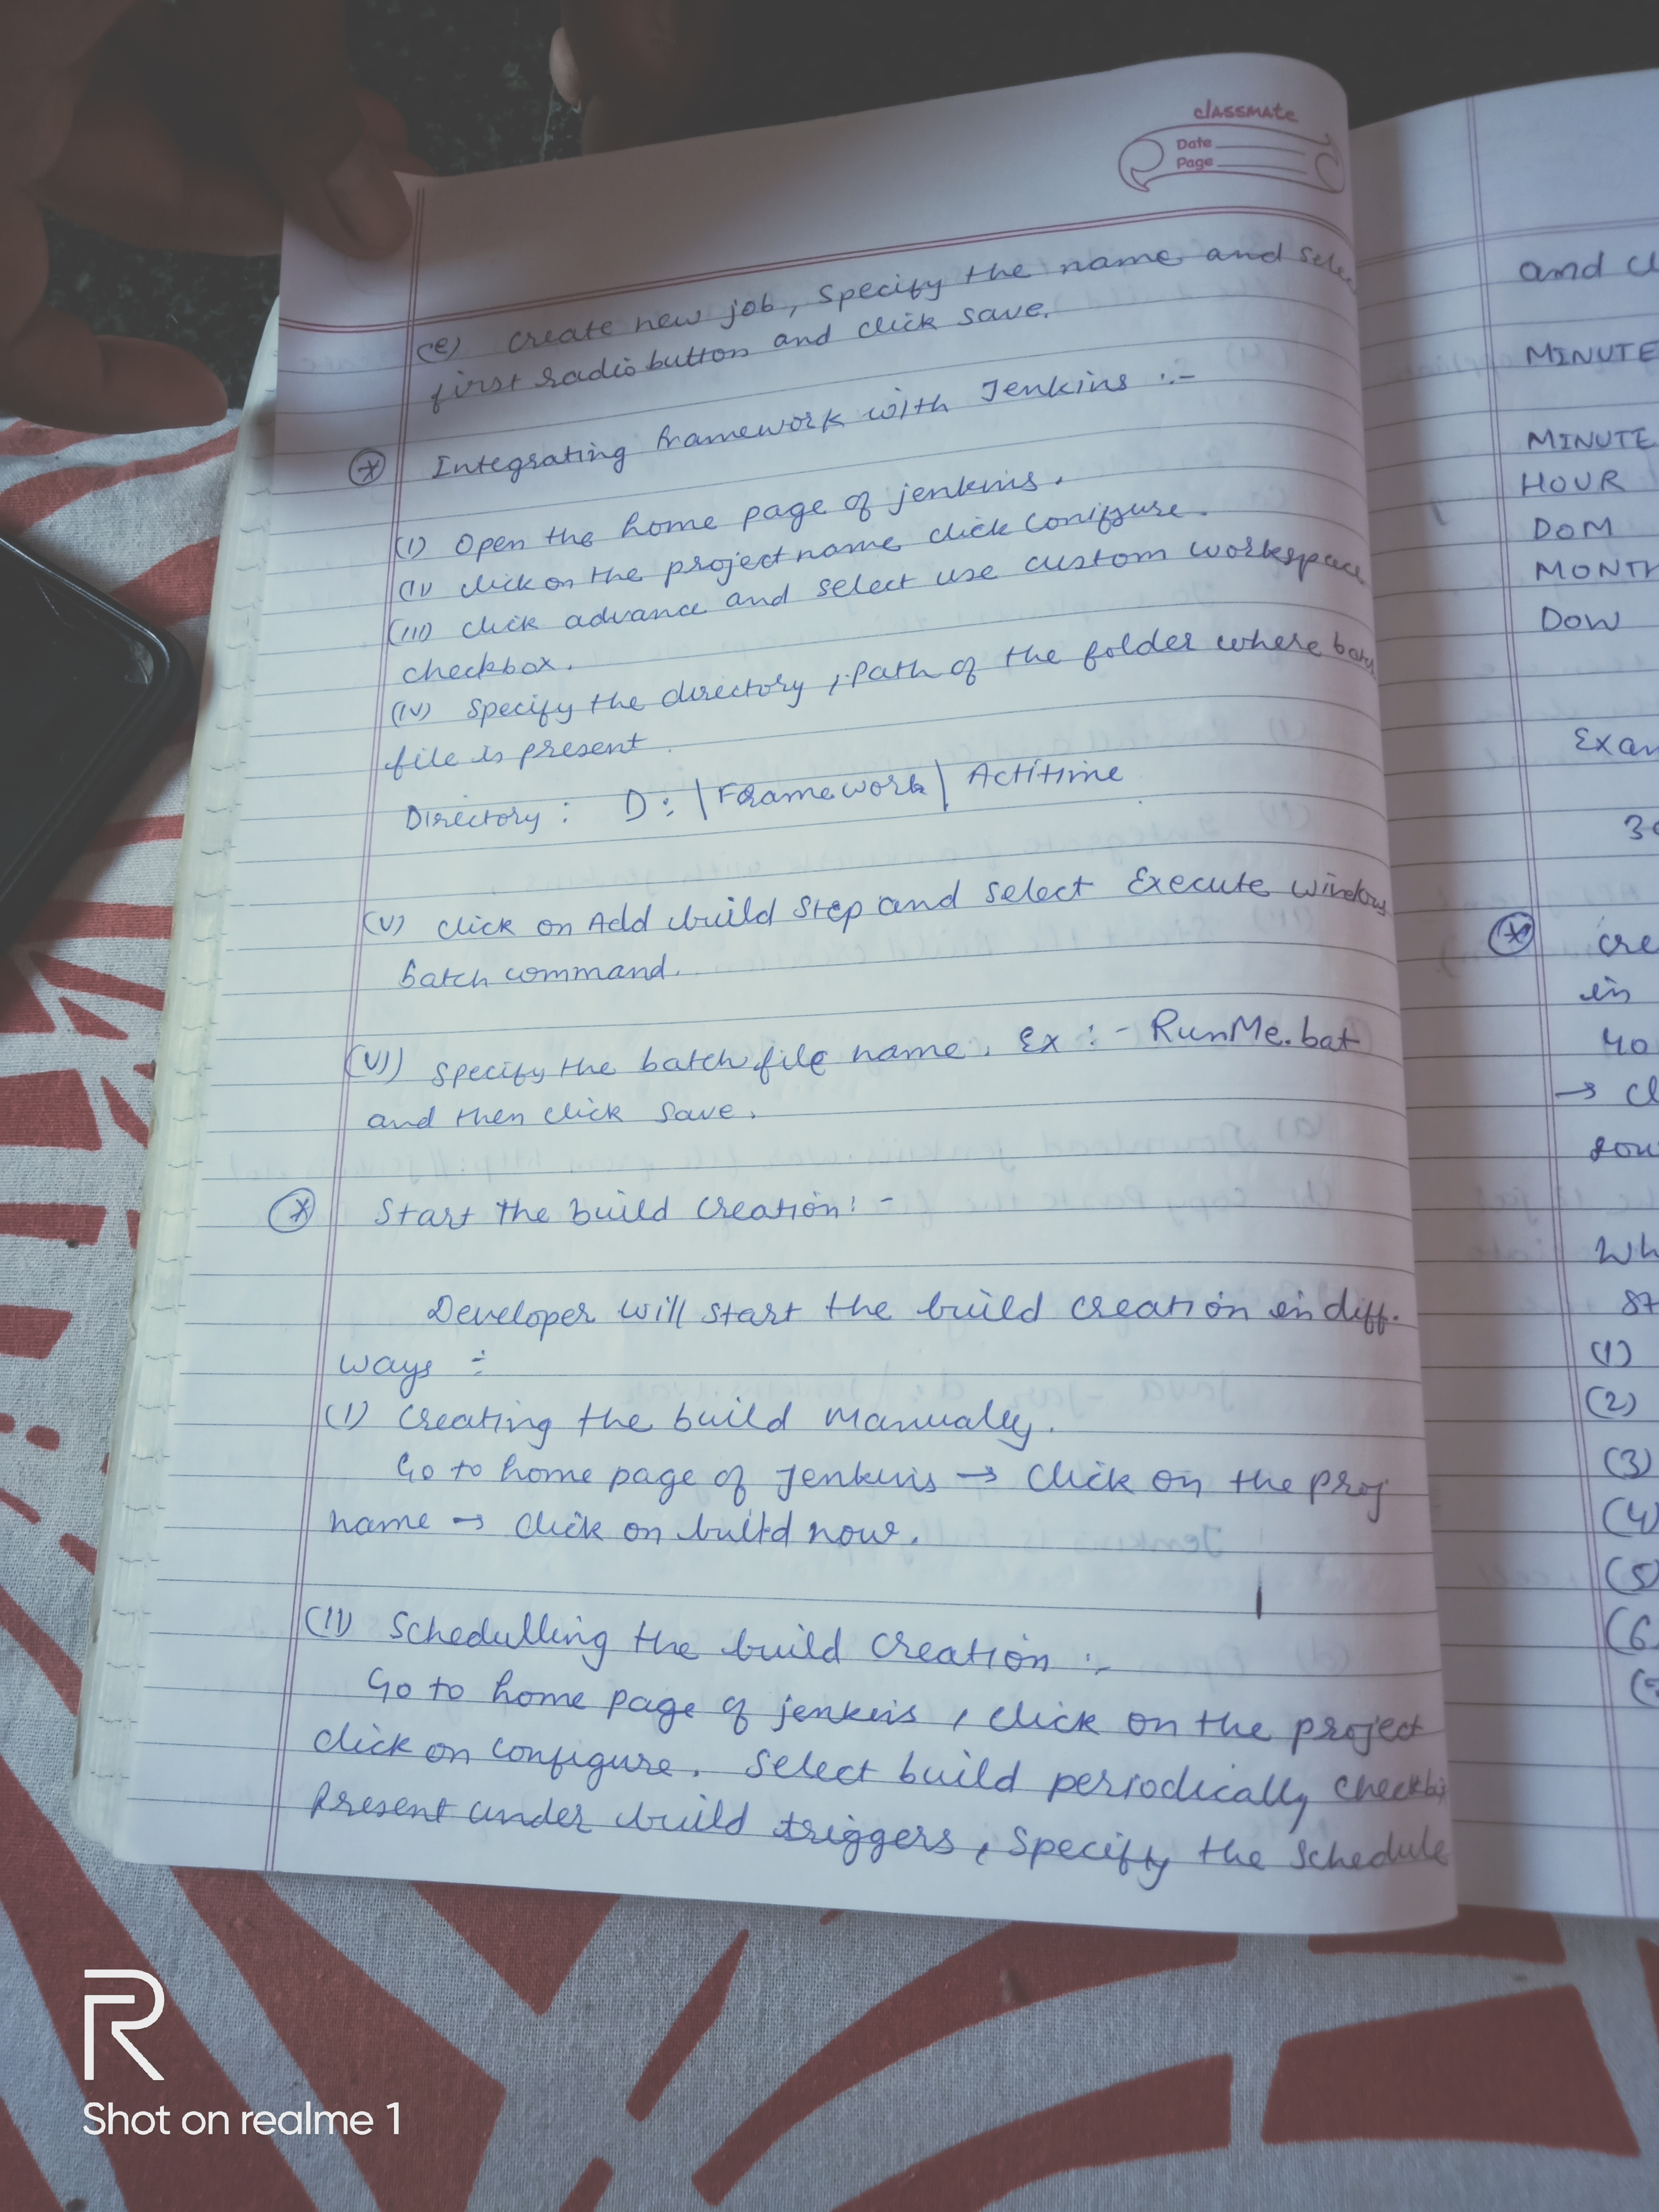 classmate
Date
Page
(e) Create new job, Specify the name and sele
first radio button and click save.
* Integrating framework with Jenkins :-
(I) Open the home page of jenkins.
(II) click on the project name click Configure.
(III) click advance and select use custom workspace
checkbox.
(IV) Specify the directory, Path of the folder where batch
file is present.
Directory : D:\Framework\Actitime
(V) Click on Add build Step and select Execute windows
batch command.
(VI) Specify the batch file name. Ex :- RunMe.bat
and then click save.
* Start the build Creation:-
Developer will start the build creation in diff.
ways :-
(I) Creating the build Manually.
Go to home page of Jenkins → Click on the proj
name → Click on build now.
(II) Schedulling the build Creation :-
Go to home page of jenkins, click on the project
click on configure. Select build periodically checkbo
Present under build triggers, Specify the Schedule
and cl
MINUTE
MINUTE
HOUR
DOM
MONTH
DOW
Exam
30
* Cre
in
40
→ Cl
sou
Wh
st
(1)
(2)
(3)
(4)
(5)
(6)
Shot on realme 1